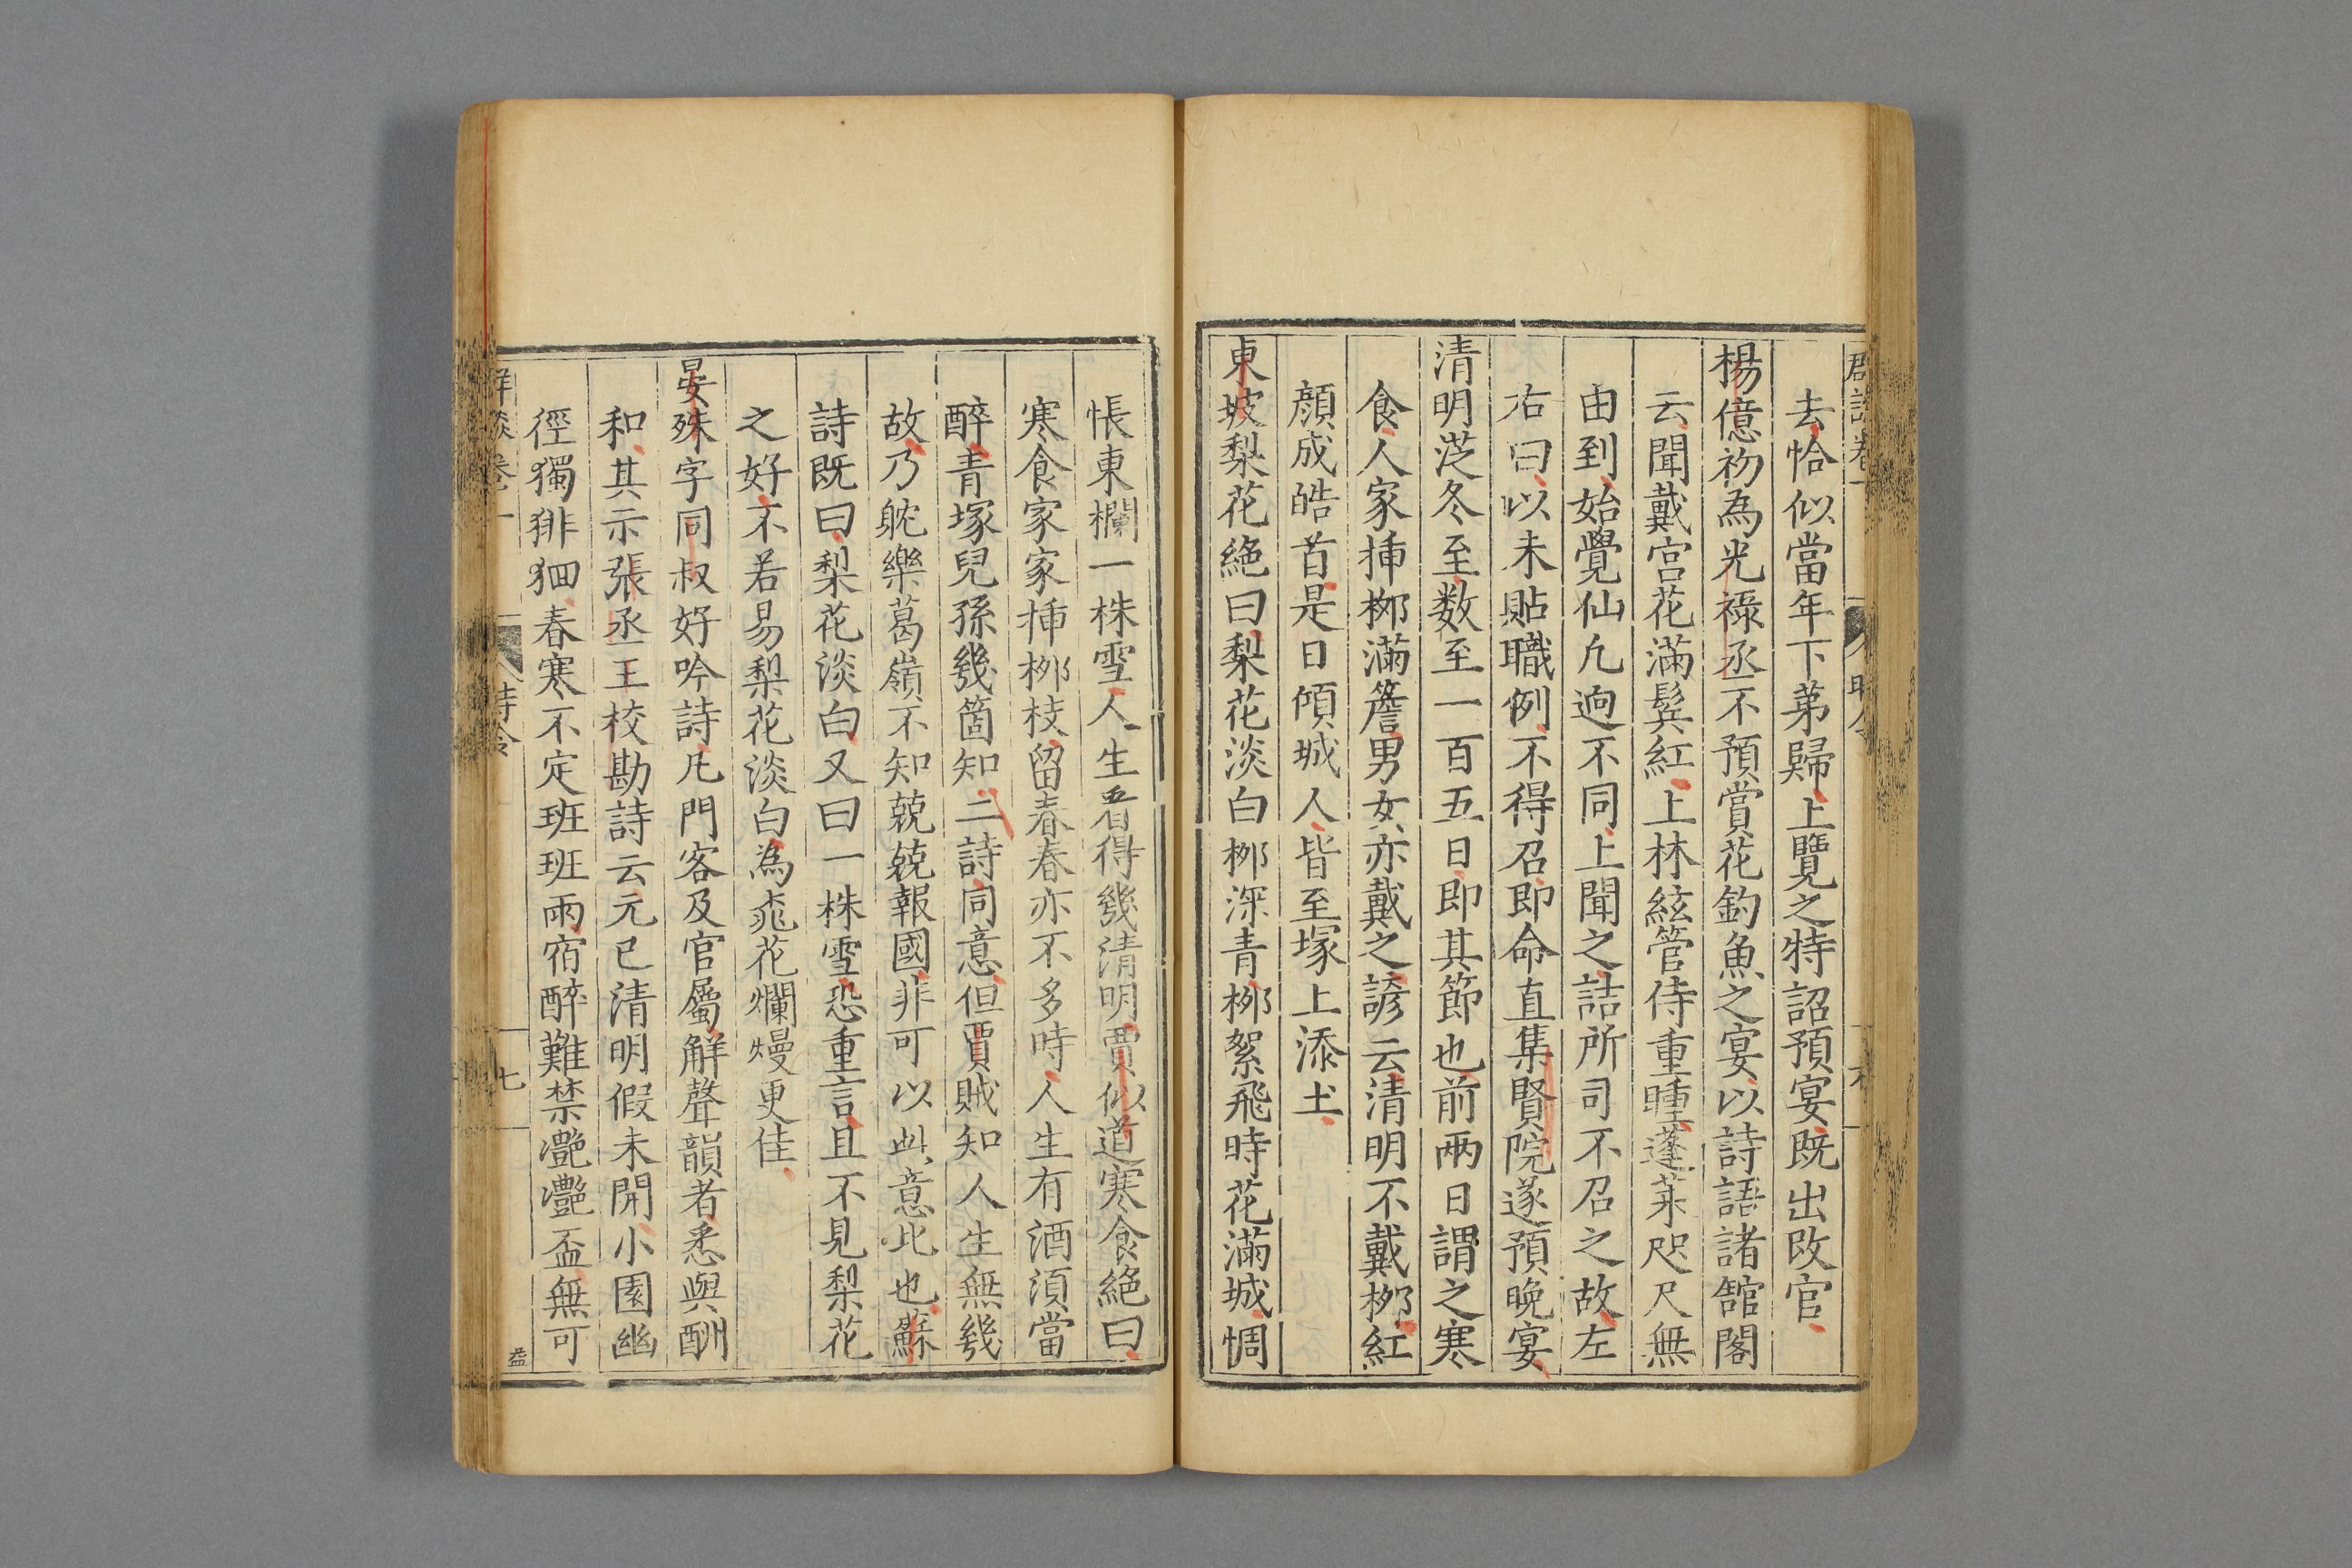 去恰似當年下苐歸上覽之特詔預宴既出改官
楊億初為光祿丞不預賞花釣魚之宴以詩語諸舘閣
云聞戴宫花滿鬂紅上林絃管侍重瞳蓬萊咫尺無
由到始覺仙凢逈不同上聞之詰所司不召之故左
右曰以未貼職例不得召即命直集賢院遂預晚宴
清明從冬至数至一百五日即其節也前兩日謂之寒
食人家揷栁滿簷男女亦戴之諺云清明不戴栁紅
顔成皓首是日傾城人皆至塚上添土
東坡梨花絶曰梨花淡白栁深青栁絮飛時花滿城惆
悵東欄一株雪人生看得幾清明賈似道寒食絶曰
寒食家家揷栁枝留春春亦不多時人生有酒須當
醉青塚兒孫幾箇知二詩同意但賈賊知人生無幾
故乃躭樂葛嶺不知兢兢報國非可以此意比也蘇
詩既曰梨花淡白又曰一株雪恐重言且不見梨花
之好不若易梨花淡白為桃花爛熳更佳
晏殊字同叔好吟詩凢門客及官屬解聲韻者悉與酬
和其示張丞王校勘詩云元已清明假未開小園幽
徑獨徘徊春寒不定班班雨宿醉難禁灔灔盃無可
七